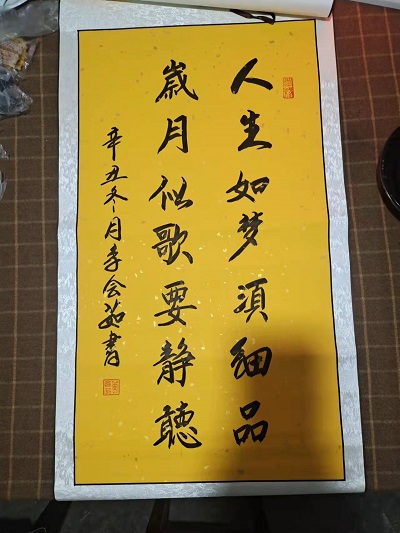 人生如梦須細品
歲月似歌要静聽
辛丑冬月李会茹書